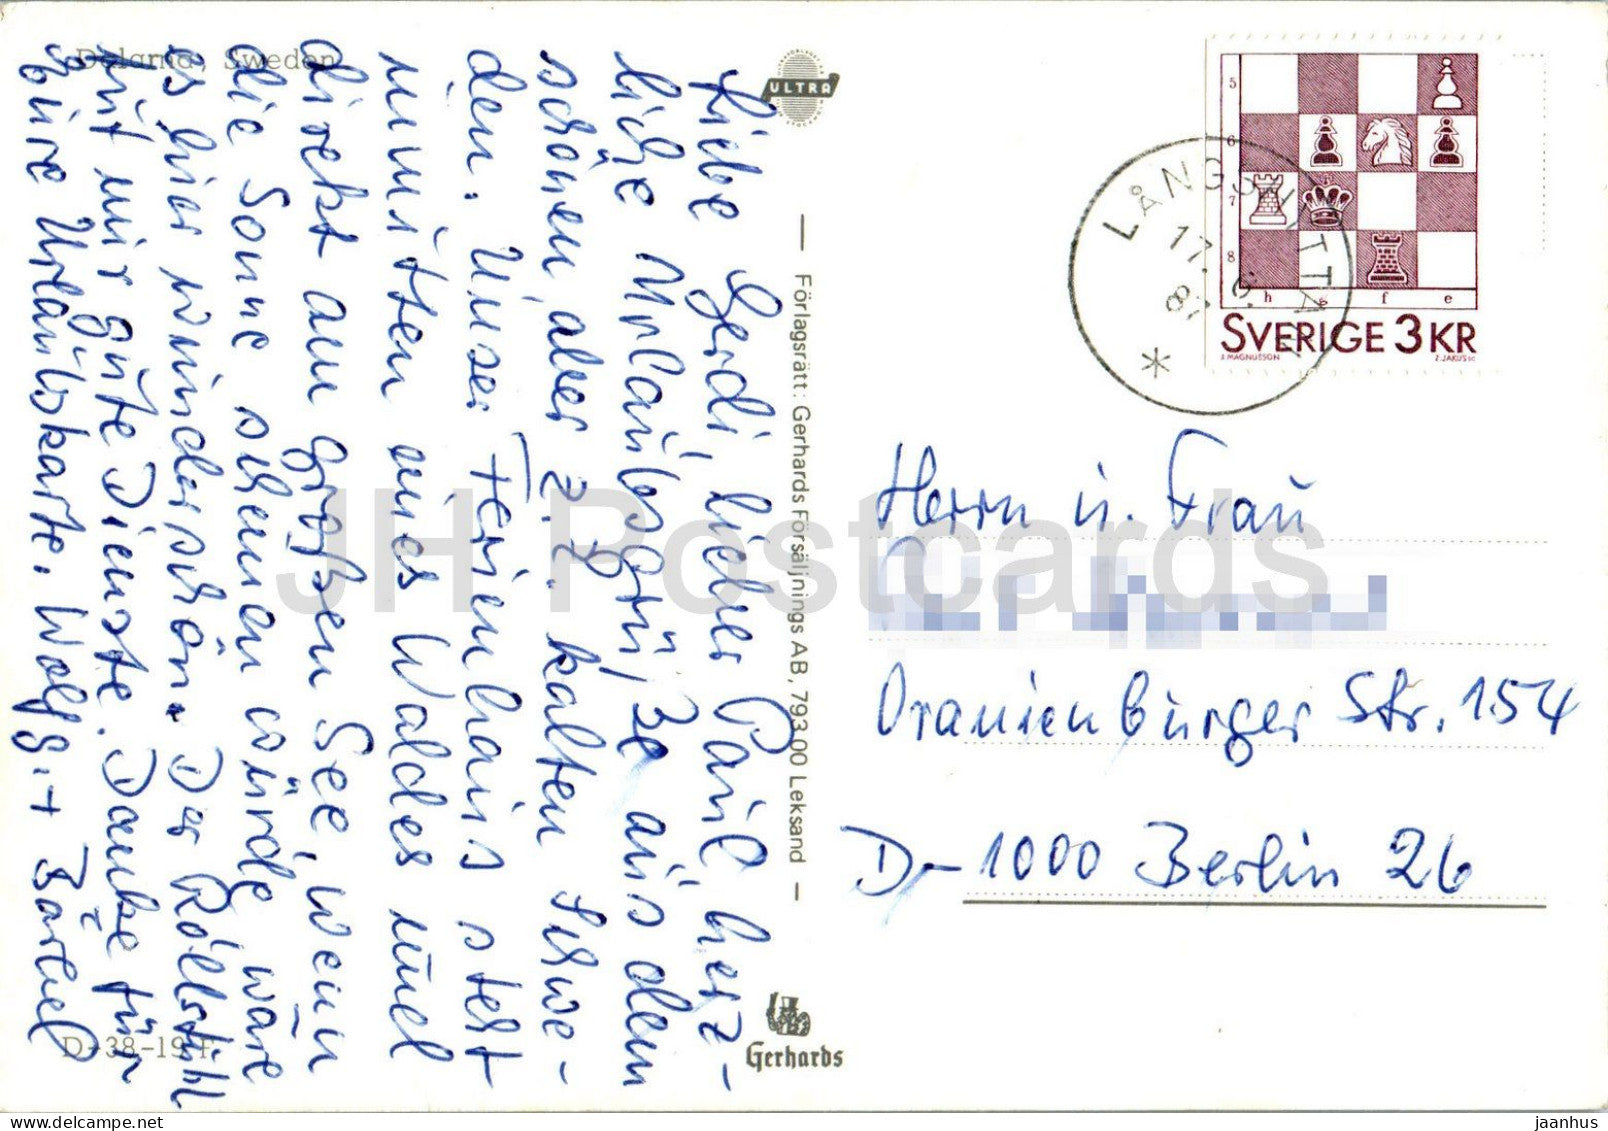 Dalarna, Sweden
ULTRA
Liebe Gerdi, lieber Paul, herz-
liche Urlaubsgrüße aus dem
schönen, aber z.Z. kalten Schwe-
den. Unser Ferienhaus steht
inmitten eines Waldes und
direkt am großen See, wenn
die Sonne scheinen würde, wäre
es hier wunderschön. Der Rollstuhl
tut mir gute Dienste. Danke für
Eure Urlaubskarte. Wolfg. + Bärbel
D-38-19-F
— Förlagsrätt: Gerhards Försäljnings AB, 793 00 Leksand —
Gerhards
5
6
7
8
h g f e
SVERIGE 3 KR
J. MAGNUSSON
Z. JAKUS SC
LÅNGSHYTTAN
17. 6.
87
*
Herrn u. Frau
Oranienburger Str. 154
D-1000 Berlin 26
JH Postcards
jaanhus